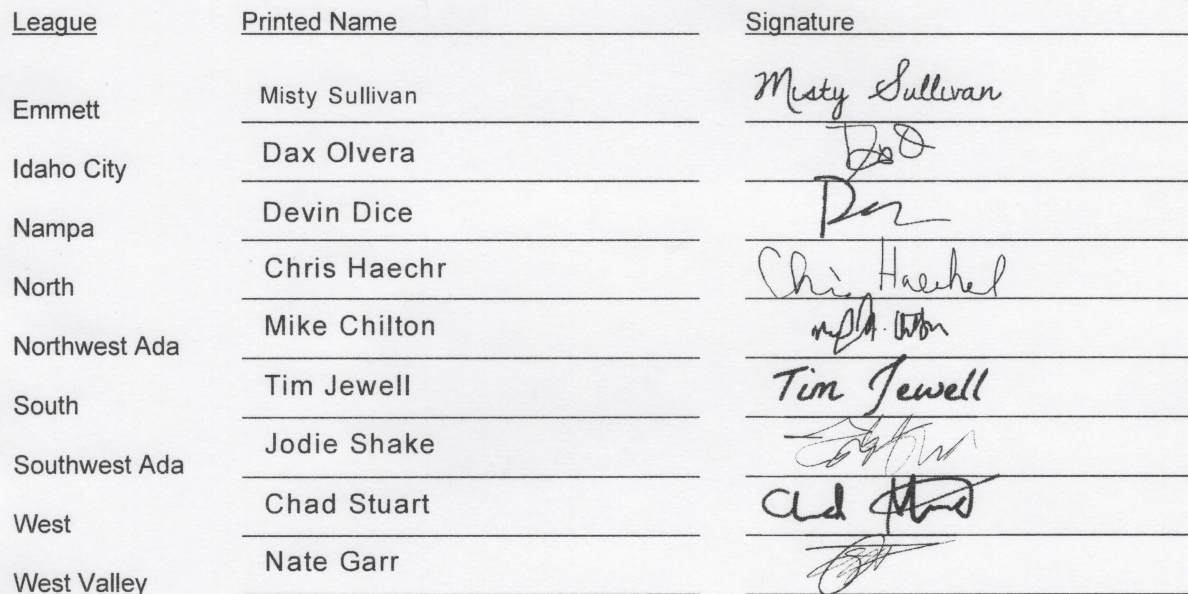 League Printed Name Signature
Emmett Misty Sullivan Misty Sullivan
Idaho City Dax Olvera
Nampa Devin Dice
North Chris Haechr Chris Haechel
Northwest Ada Mike Chilton
South Tim Jewell Tim Jewell
Southwest Ada Jodie Shake
West Chad Stuart Chad
West Valley Nate Garr